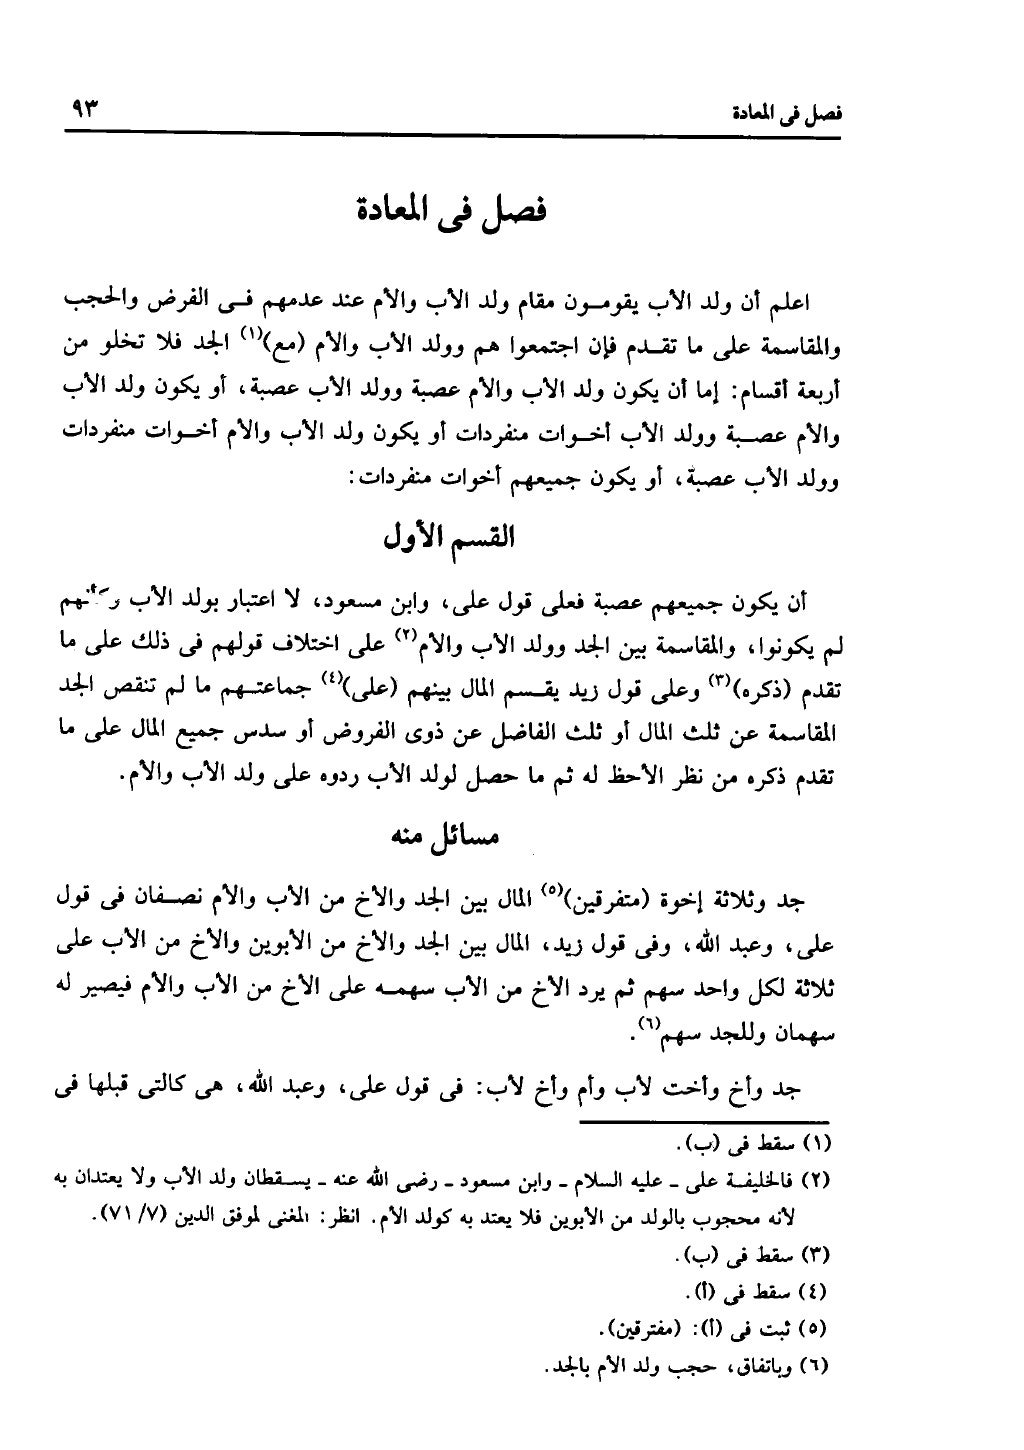 فصل فى المعادة
٩٣
فصل فى المعادة
اعلم أن ولد الأب يقومون مقام ولد الأب والأم عند عدمهم فى الفرض والحجب
والمقاسمة على ما تقدم فإن اجتمعوا هم وولد الأب والأم (مع)(١) الجد فلا تخلو من
أربعة أقسام: إما أن يكون ولد الأب والأم عصبة وولد الأب عصبة، أو يكون ولد الأب
والأم عصبة وولد الأب أخوات منفردات أو يكون ولد الأب والأم أخوات منفردات
وولد الأب عصبة، أو يكون جميعهم أخوات منفردات:
القسم الأول
أن يكون جميعهم عصبة فعلى قول على، وابن مسعود، لا اعتبار بولد الأب وكأنهم
لم يكونوا، والمقاسمة بين الجد وولد الأب والأم(٢) على اختلاف قولهم فى ذلك على ما
تقدم (ذكره)(٣) وعلى قول زيد يقسم المال بينهم (على)(٤) جماعتهم ما لم تنقص الجد
المقاسمة عن ثلث المال أو ثلث الفاضل عن ذوى الفروض أو سدس جميع المال على ما
تقدم ذكره من نظر الأحظ له ثم ما حصل لولد الأب ردوه على ولد الأب والأم.
مسائل منه
جد وثلاثة إخوة (متفرقين)(٥) المال بين الجد والأخ من الأب والأم نصفان فى قول
على، وعبد الله، وفى قول زيد، المال بين الجد والأخ من الأبوين والأخ من الأب على
ثلاثة لكل واحد سهم ثم يرد الأخ من الأب سهمه على الأخ من الأب والأم فيصير له
سهمان وللجد سهم(٦).
جد وأخ وأخت لأب وأم وأخ لأب: فى قول على، وعبد الله، هى كالتى قبلها فى
(١) سقط فى (ب).
(٢) فالخليفة على - عليه السلام - وابن مسعود - رضى الله عنه - يسقطان ولد الأب ولا يعتدان به
لأنه محجوب بالولد من الأبوين فلا يعتد به كولد الأم. انظر: المغنى لموفق الدين (٧/ ٧١).
(٣) سقط فى (ب).
(٤) سقط فى (أ).
(٥) ثبت فى (أ): (مفترقين).
(٦) وباتفاق، حجب ولد الأم بالجد.